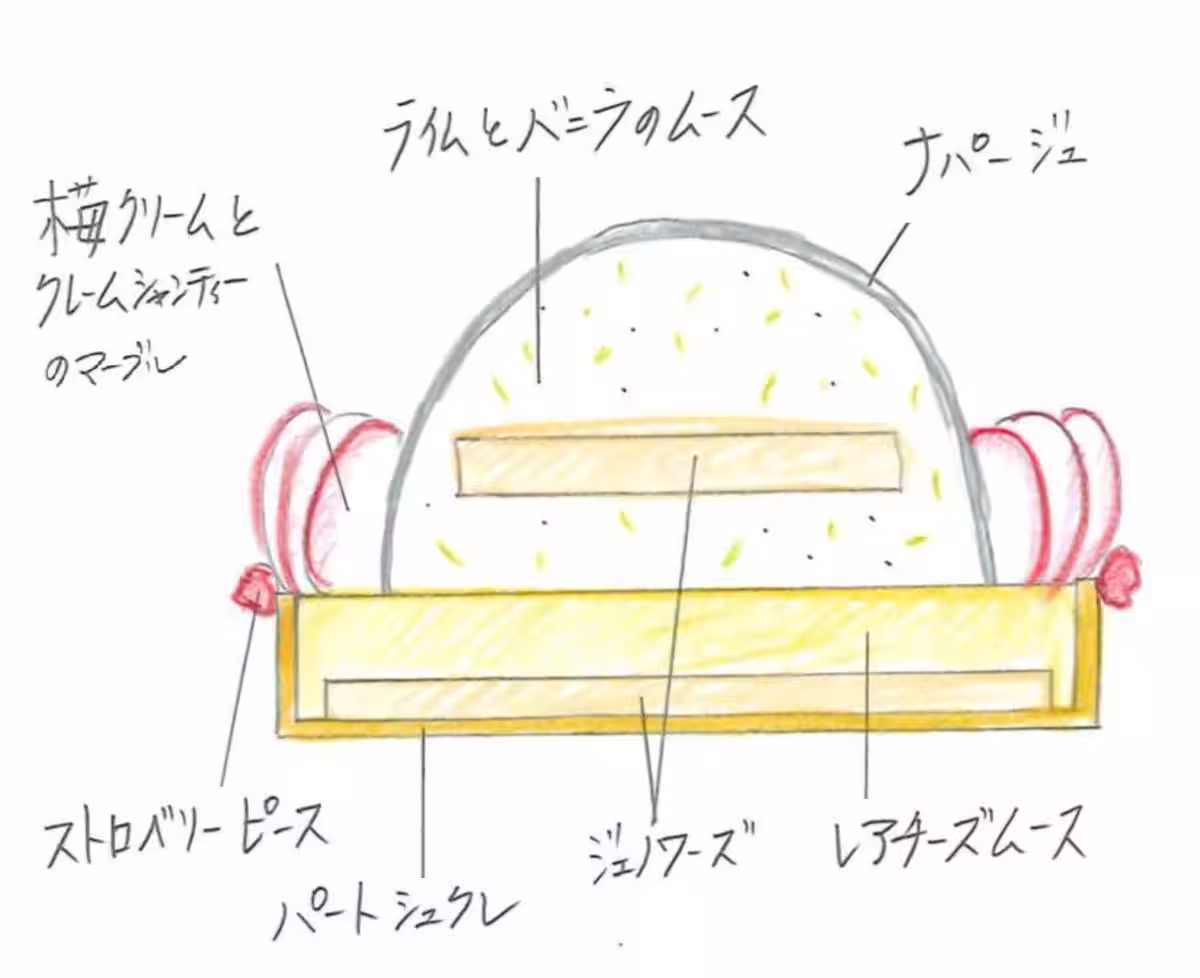 ライムとバニラのムース
ナパージュ
苺クリームと
クレームシャンティー
のマーブル
ストロベリーピース
パートシュクレ
ジェノワーズ
レアチーズムース